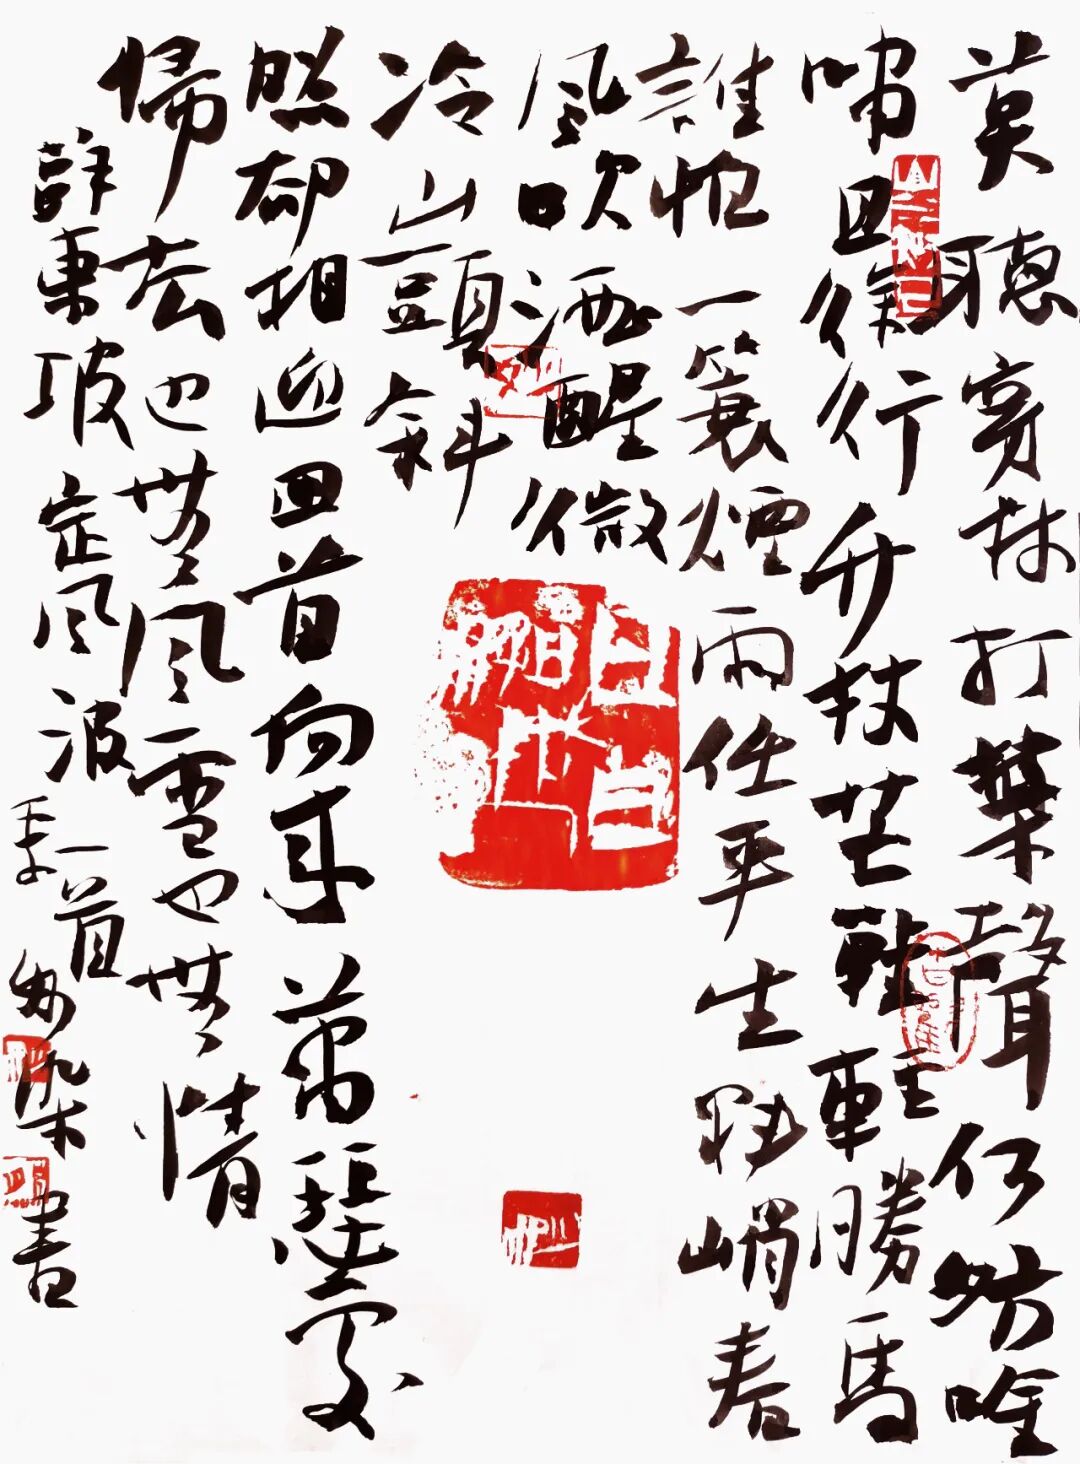 莫聽穿林打葉聲何妨唫
嘯且徐行竹杖芒鞋輕勝馬
誰怕一蓑煙雨任平生料峭春
風吹酒醒微
冷山頭斜
照却相迎回首向來蕭瑟處
帰去也無風雪也無情
東坡定風波一首
染書